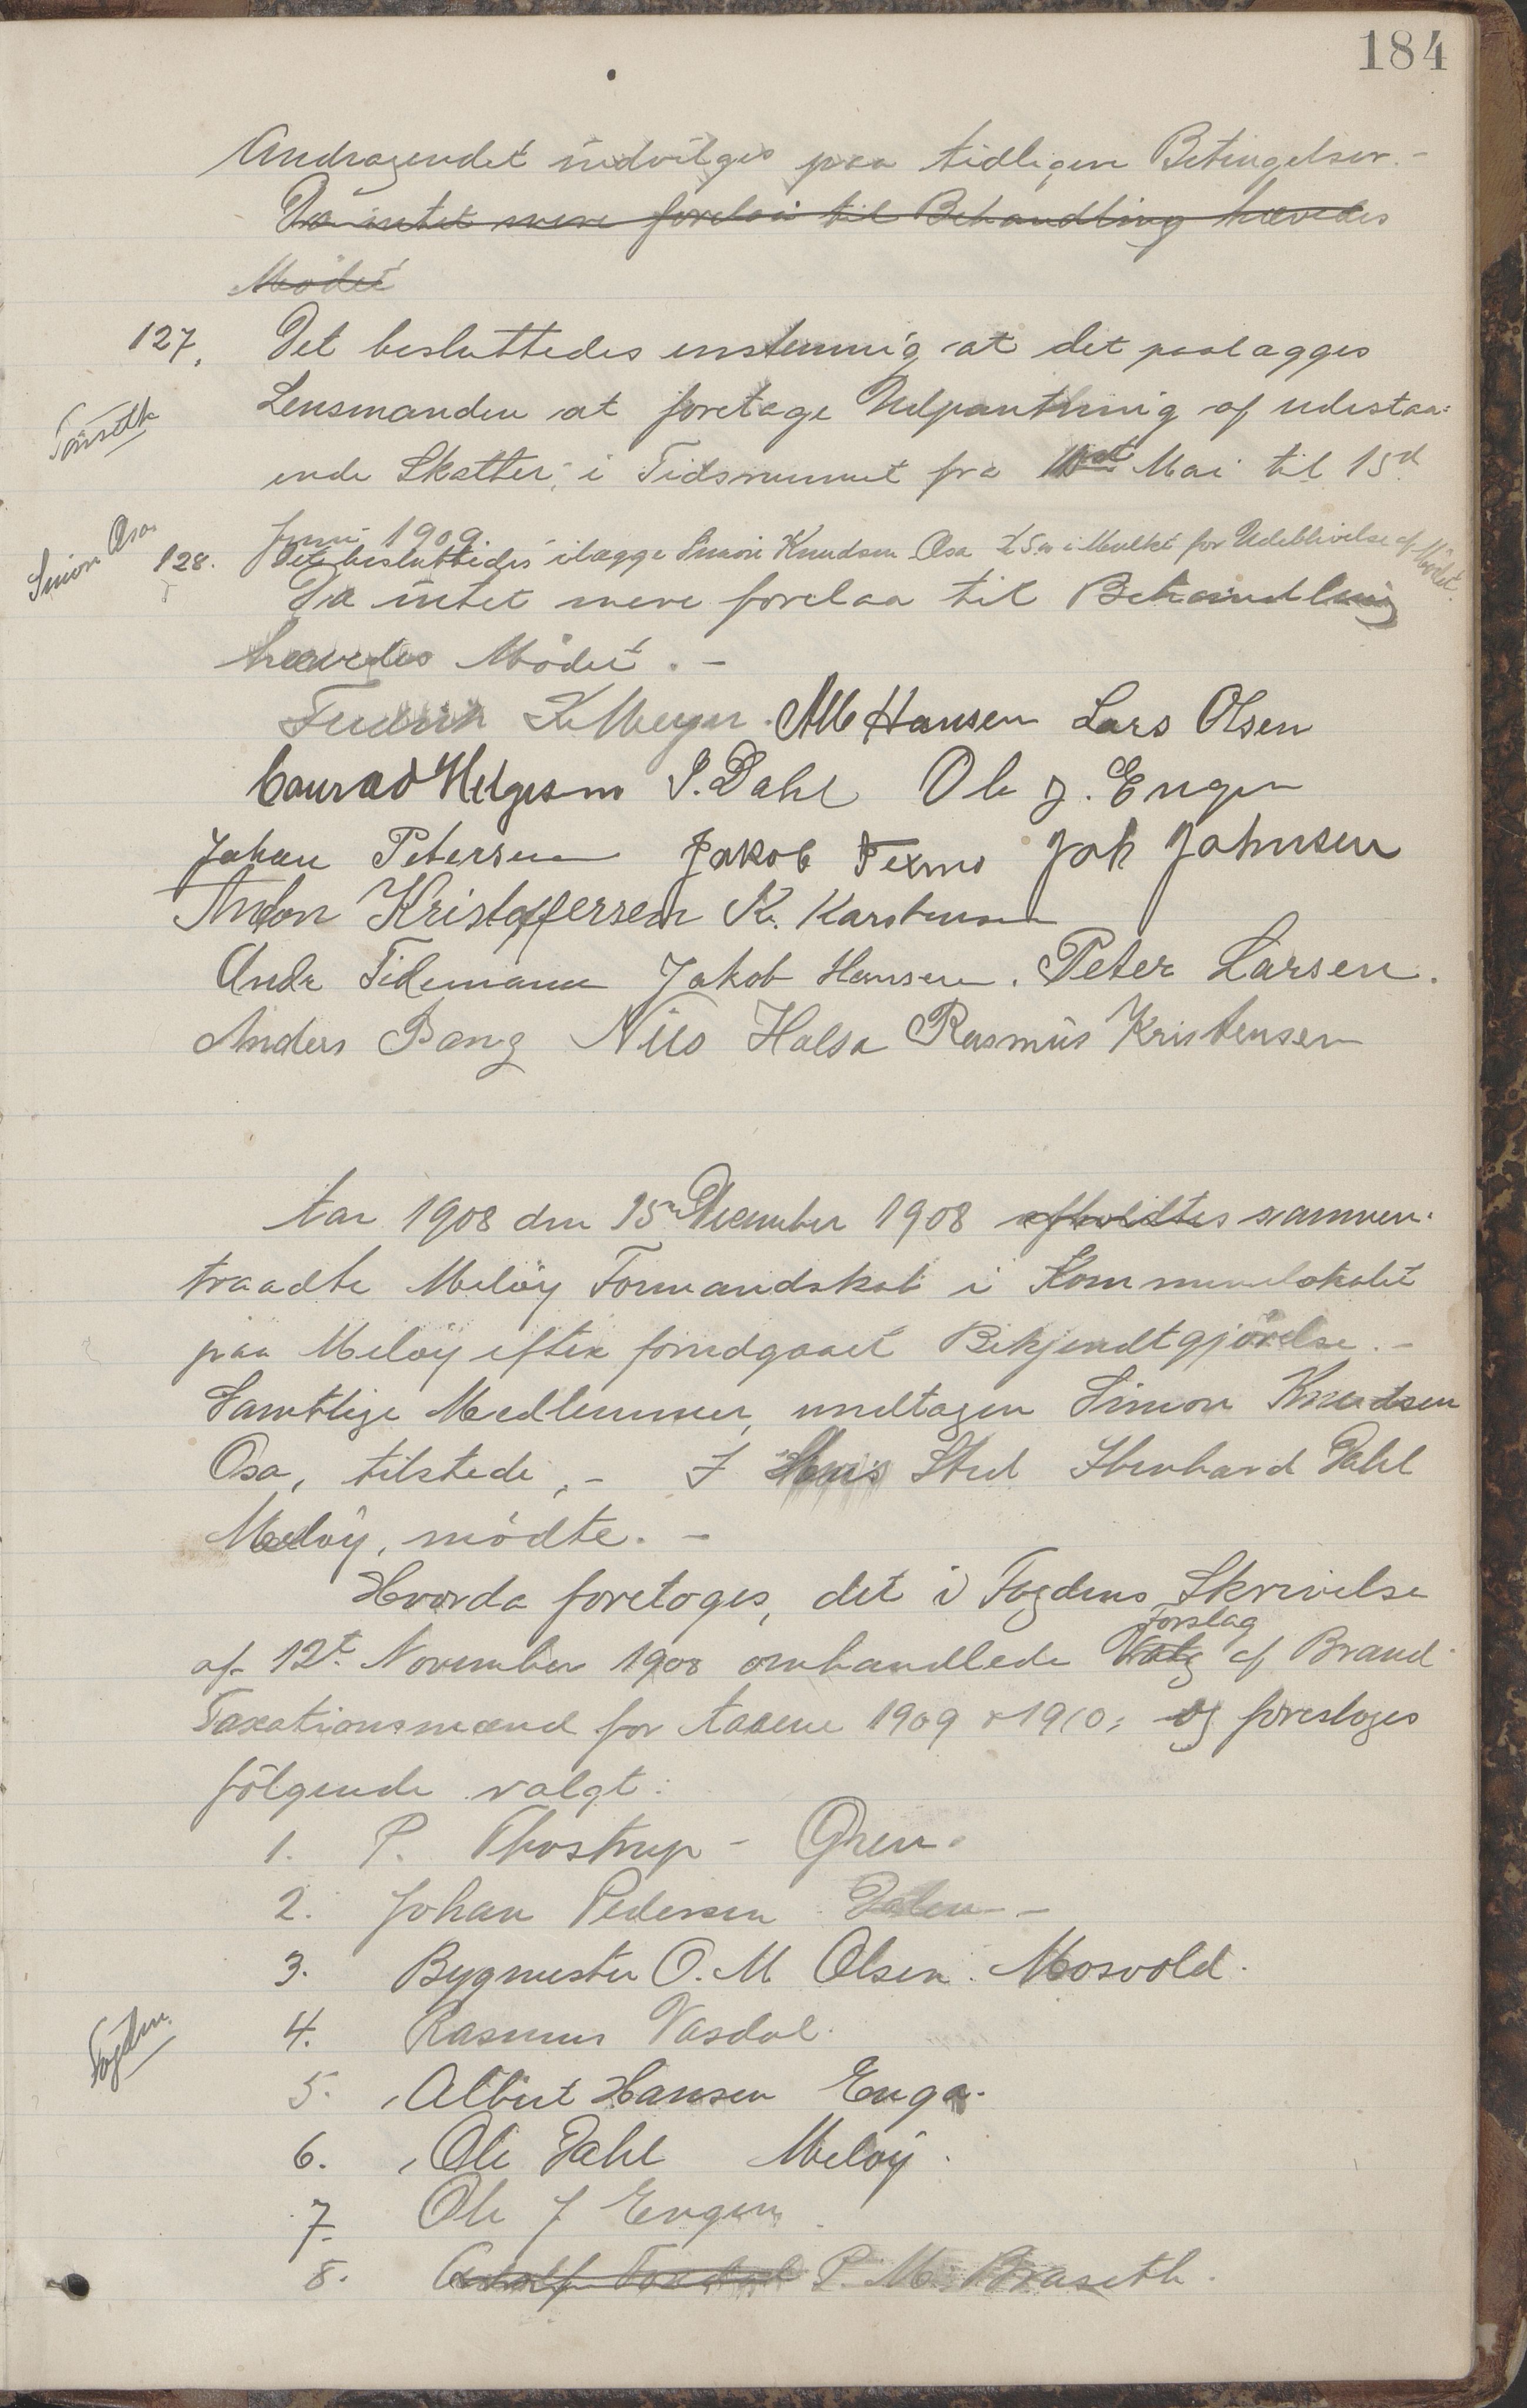 184
Andragendet indvilges paa tidligere Betingelser. -
Da intet mere forelaa til Behandling hævedes
Mødet
127. Det besluttedes enstemmig at det paalægges
Lensmanden at foretage Udpantning af udestaa-
ende Skatter, i Tidsrummet fra Mai til 15d
Juni 1909.
Simon Osa
128. Det besluttedes ilægge Simon Knudsen Osa i Mulkt for Udeblivelse af Mødet.
Da intet mere forelaa til Behandling
hævedes Mødet. -
K Meyer. Hansen Lars Olsen
Conrad Helgesen P. Dahl Ole J. Engen
Johan Petersen Jakob Texmo Joh Johnsen
Anton Kristoffersen K. Karstensen
Andr Tidemann Jakob Hansen. Peter Larsen.
Anders Bang Nils Halsa Rasmus Kristensen
Aar 1908 den 15de December 1908 afholdtes sammen-
traadte Meløy Formandskab i Kommunelokalet
paa Meløy efter forudgaaet Bekjendtgjørelse. -
Samtlige Medlemmer, undtagen Simon Knudsen
Osa, tilstede, - I Hans Sted Eberhard Dahl
Meløy, mødte. -
Hvorda foretoges, det i Fogdens Skrivelse
forslag
af 12t November 1908 omhandlede Valg af Brand-
Taxationsmænd for Aarene 1909 & 1910; og foresloges
følgende valgt:
1. P. Thostrup - Ørnes.
2. Johan Pedersen Dalen -
3. Bygmester O. M Olsen. Mosvold.
Fogden.
4. Rasmus Vasdal.
5. Albert Hansen Enga.
6. Ole Dahl Meløy.
7. Ole J Engen
8. Adolf P. M. Braseth.